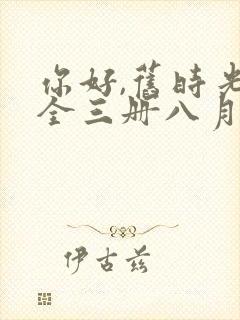 你好,舊時光
全三册八月
伊古兹